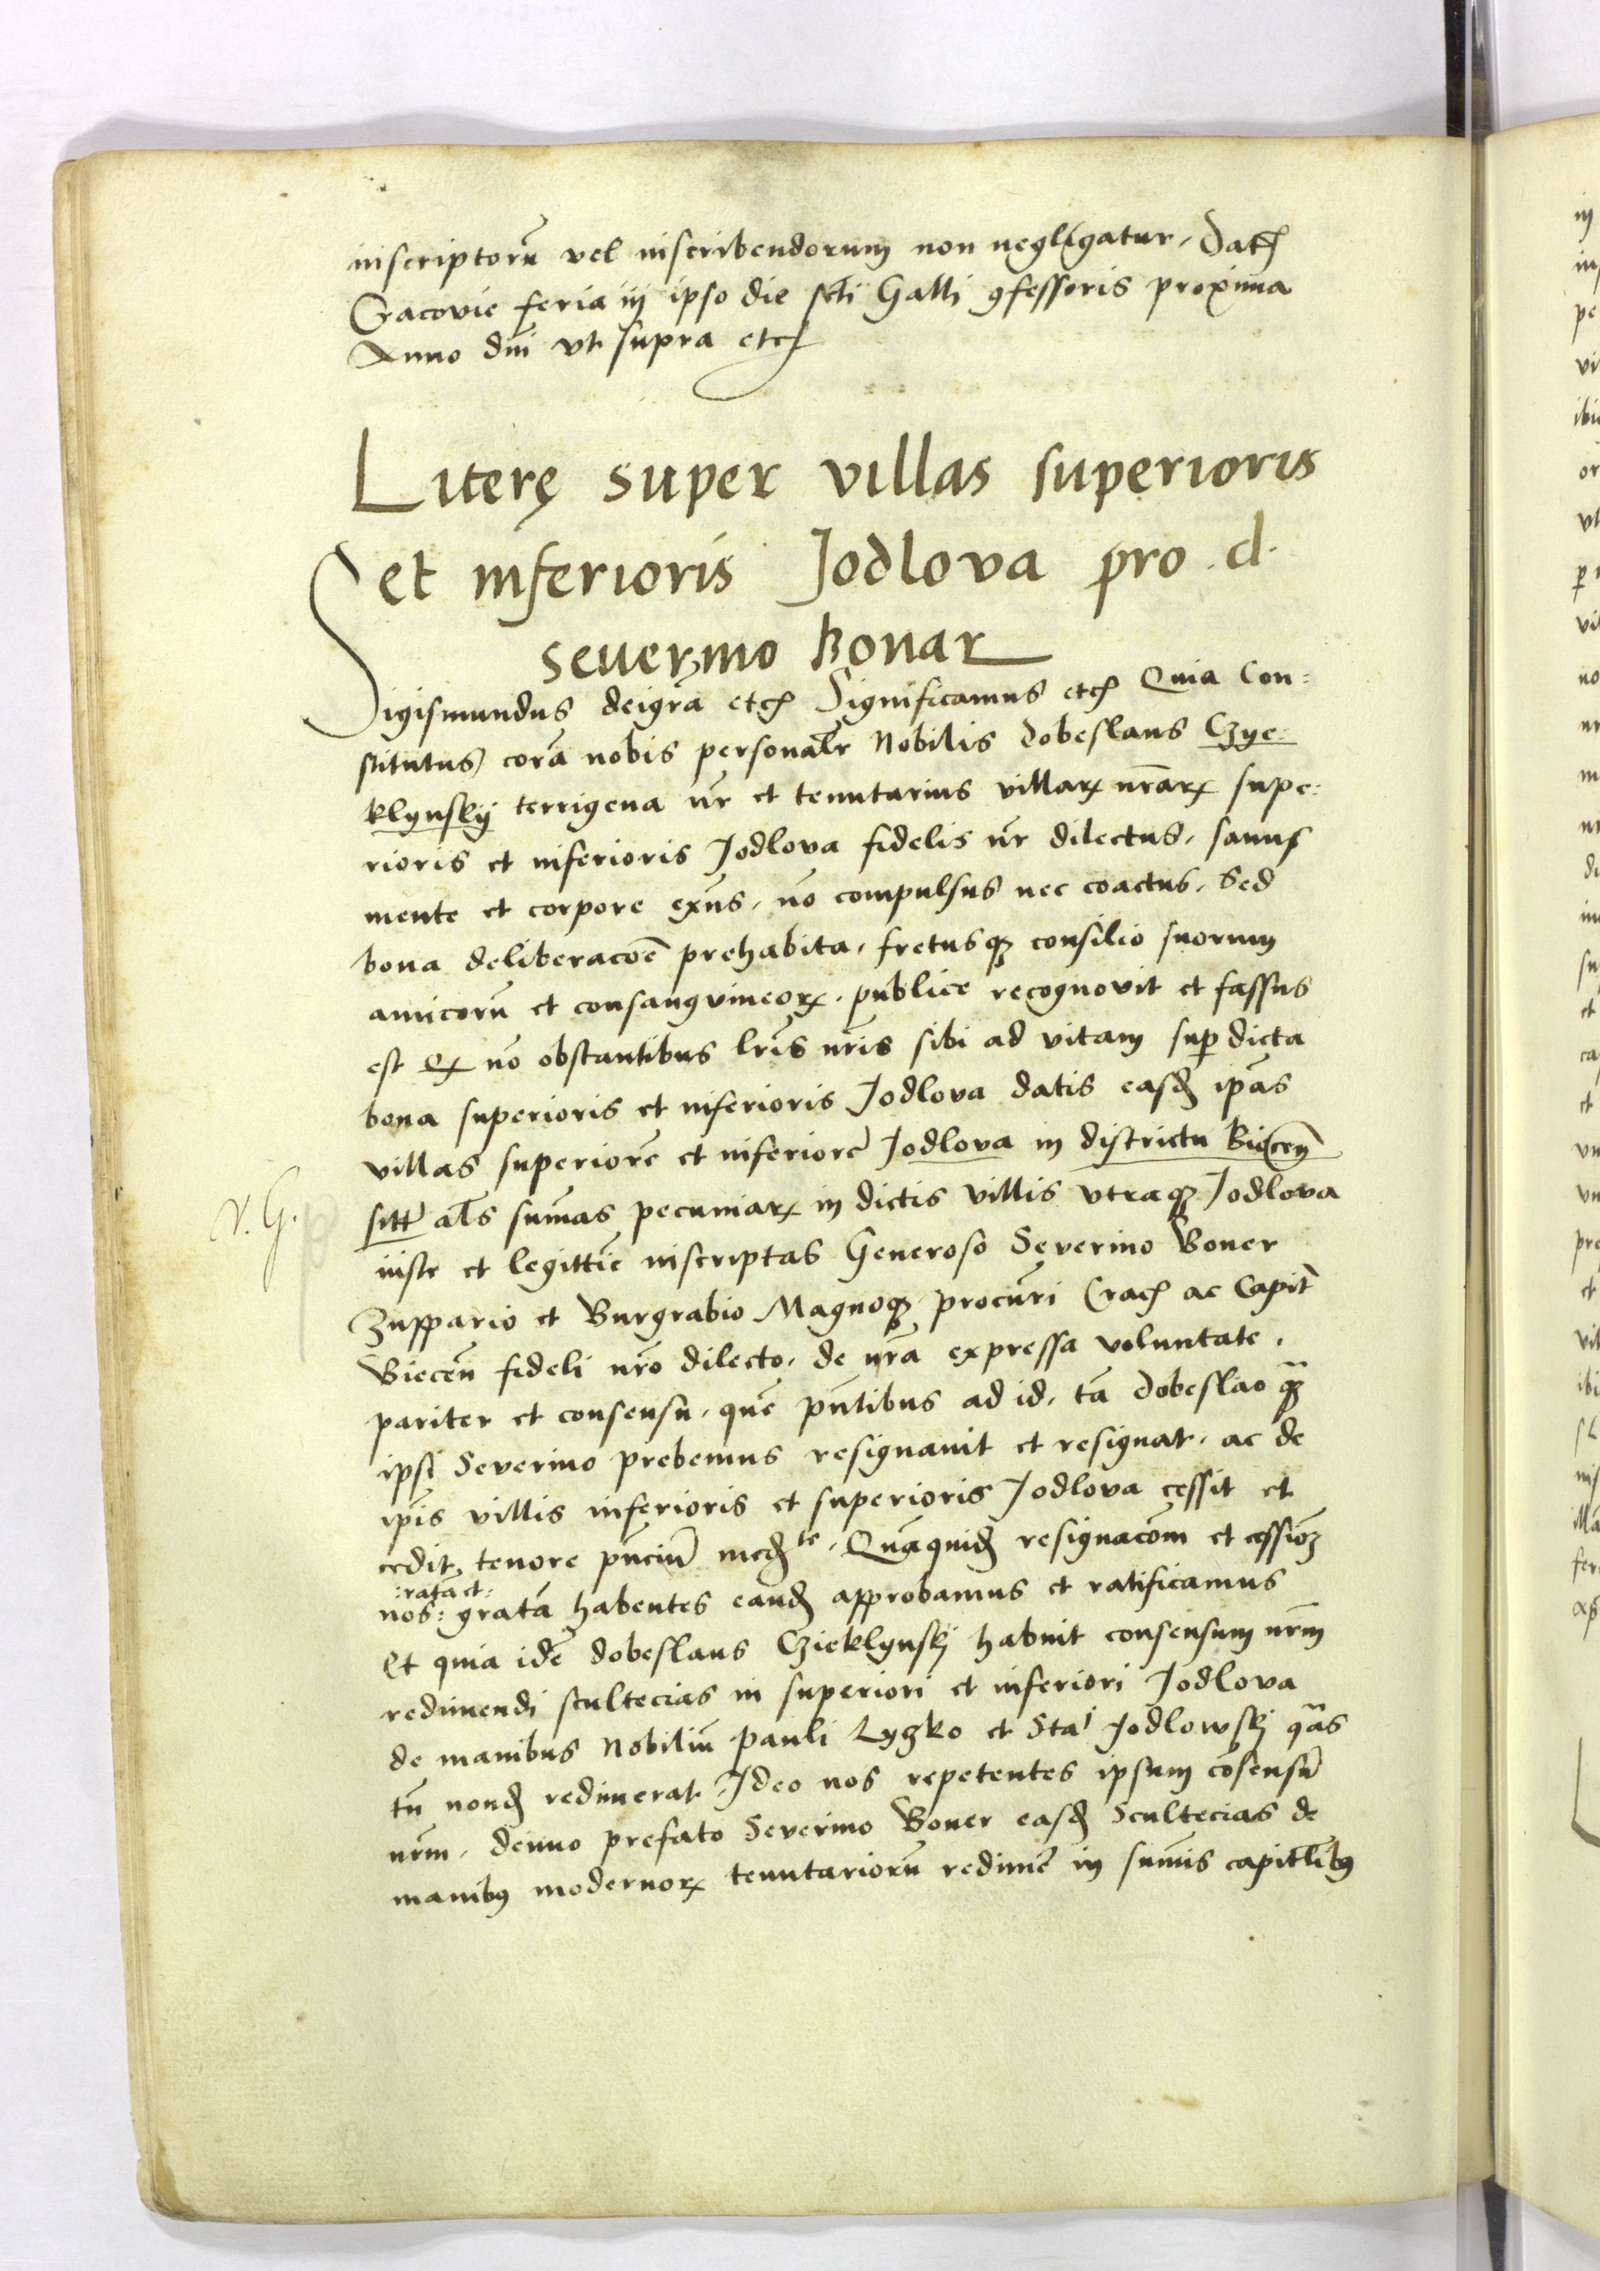 inscriptorũ vel inscribendorum non negligatur. Datꝭ
Cracovie feria iij ipso die scti Galli ꝯfessoris proxima
Anno dni vt supra etcꝭ
Literę super villas superioris
et inferioris Jodlova pro d.
severino Bonar
Sigismundus deigrã etcꝭ Significamus etcꝭ Quia Con:
stitutus corã nobis personalr Nobilis Dobeslaus Czye:
klynskỹ terrigena nr̃ et tenutarius villaꝝ nrãꝝ supe:
rioris et inferioris Jodlova fidelis nr̃ dilectus, sanus
mente et corpore exñs, nõ compulsus nec coactus, Sed
bona deliberacõe prehabita, fretusqꝫ consilio suorum
amicorũ et consangvineoꝝ, publice recognovit et fassus
est Qꝫ nõ obstantibus lr̃is nr̃is sibi ad vitam suꝑ dicta
bona superioris et inferioris Jodlova datis easdꝫ ip̃as
villas superiorẽ et inferiorẽ Jodlova in districtu Biecen̄
sitt̃ al̃s sum̃as pecuniaꝝ in dictis villis vtraqꝫ Jodlova
V. G.
iuste et legittiẽ inscriptas Generoso Severino Boner
Zuppario et Burgrabio Magnoqꝫ procur̃i Cracꝭ ac Capit̃
Biecen̄ fideli nr̃o dilecto, de nr̃a expressa voluntate,
pariter et consensu, quẽ pñtibus ad id, tã Dobeslao qꝫ̃
ipsi Severino prebemus resignavit et resignat, ac de
ip̃is villis inferioris et superioris Jodlova cessit et
cedit, tenore pñciũ medᵗᵉ, Quãquidꝫ resignacõm et cessiõꝫ
:ratã et:
nos: gratã habentes eandꝫ approbamus et ratificamus
Et quia idẽ Dobeslaus Czieklynskj habuit consensum nr̃m
redimendi scultecias in superiori et inferiori Jodlova
de manibus Nobiliũ Pauli Lyzko et Staⁱ Jodlowskj q̃as
tñ nondꝫ redimerat, Ideo nos repetentes ipsum cõsensũ
nr̃m, denuo prefato Severino Boner easdꝫ Scultecias de
manibꝰ modernoꝝ tenutariorũ redimẽ in sum̃is capitl̃ibꝰ